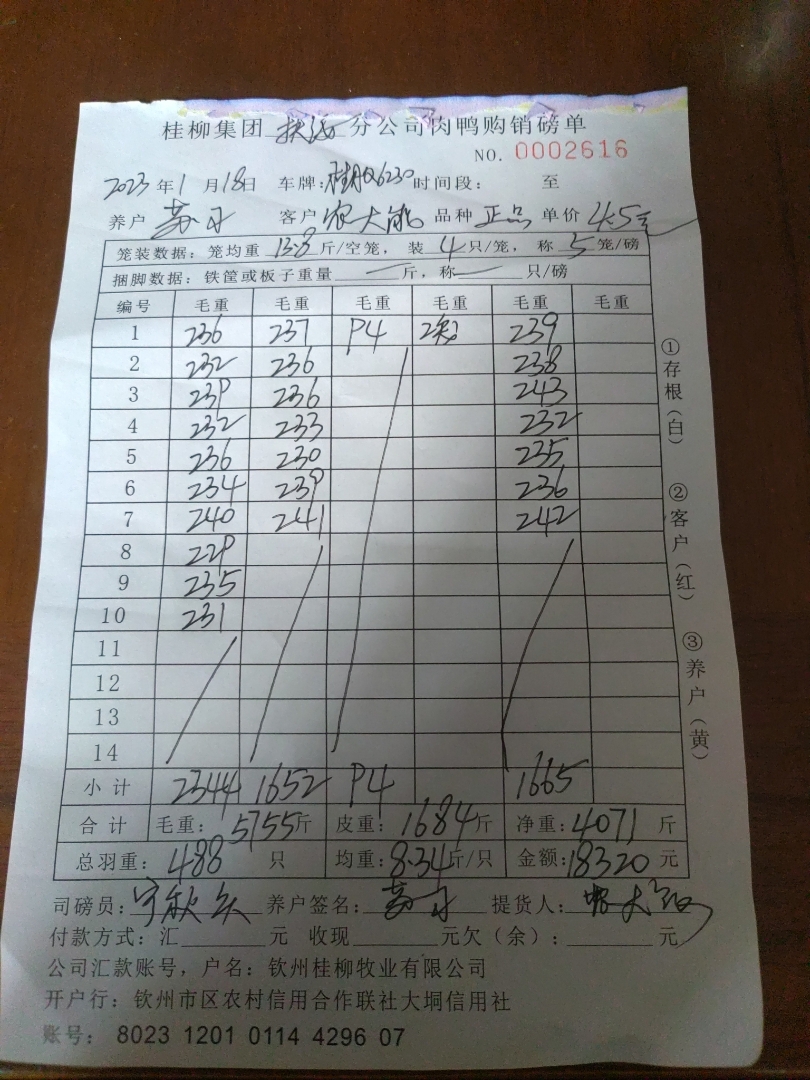 桂柳集团 分公司肉鸭购销磅单
NO. 0002616
2023年1月18日 车牌: 6230 时间段: 至
养户 客户 农大能 品种 正品 单价 4.5元
笼装数据: 笼均重 13.8 斤/空笼, 装 4 只/笼, 称 5 笼/磅
捆脚数据: 铁筐或板子重量 一 斤, 称 一 只/磅
编号 毛重 毛重 毛重 毛重 毛重 毛重
1 236 237 94 239
2 232 236 238
3 239 236 243
4 232 233 232
5 236 230 235
6 234 239 236
7 240 241 242
8 229
9 235
10 231
11
12
13
14
小计 2344 1652 94 1665
合计 毛重: 5755斤 皮重: 1684斤 净重: 4071 斤
总羽重: 488 只 均重: 8.34斤/只 金额: 18320 元
司磅员: 养户签名: 提货人:
付款方式: 汇 元 收现 元欠(余): 元
公司汇款账号, 户名: 钦州桂柳牧业有限公司
开户行: 钦州市区农村信用合作联社大垌信用社
账号: 8023 1201 0114 4296 07
①存根(白) ②客户(红) ③养户(黄)